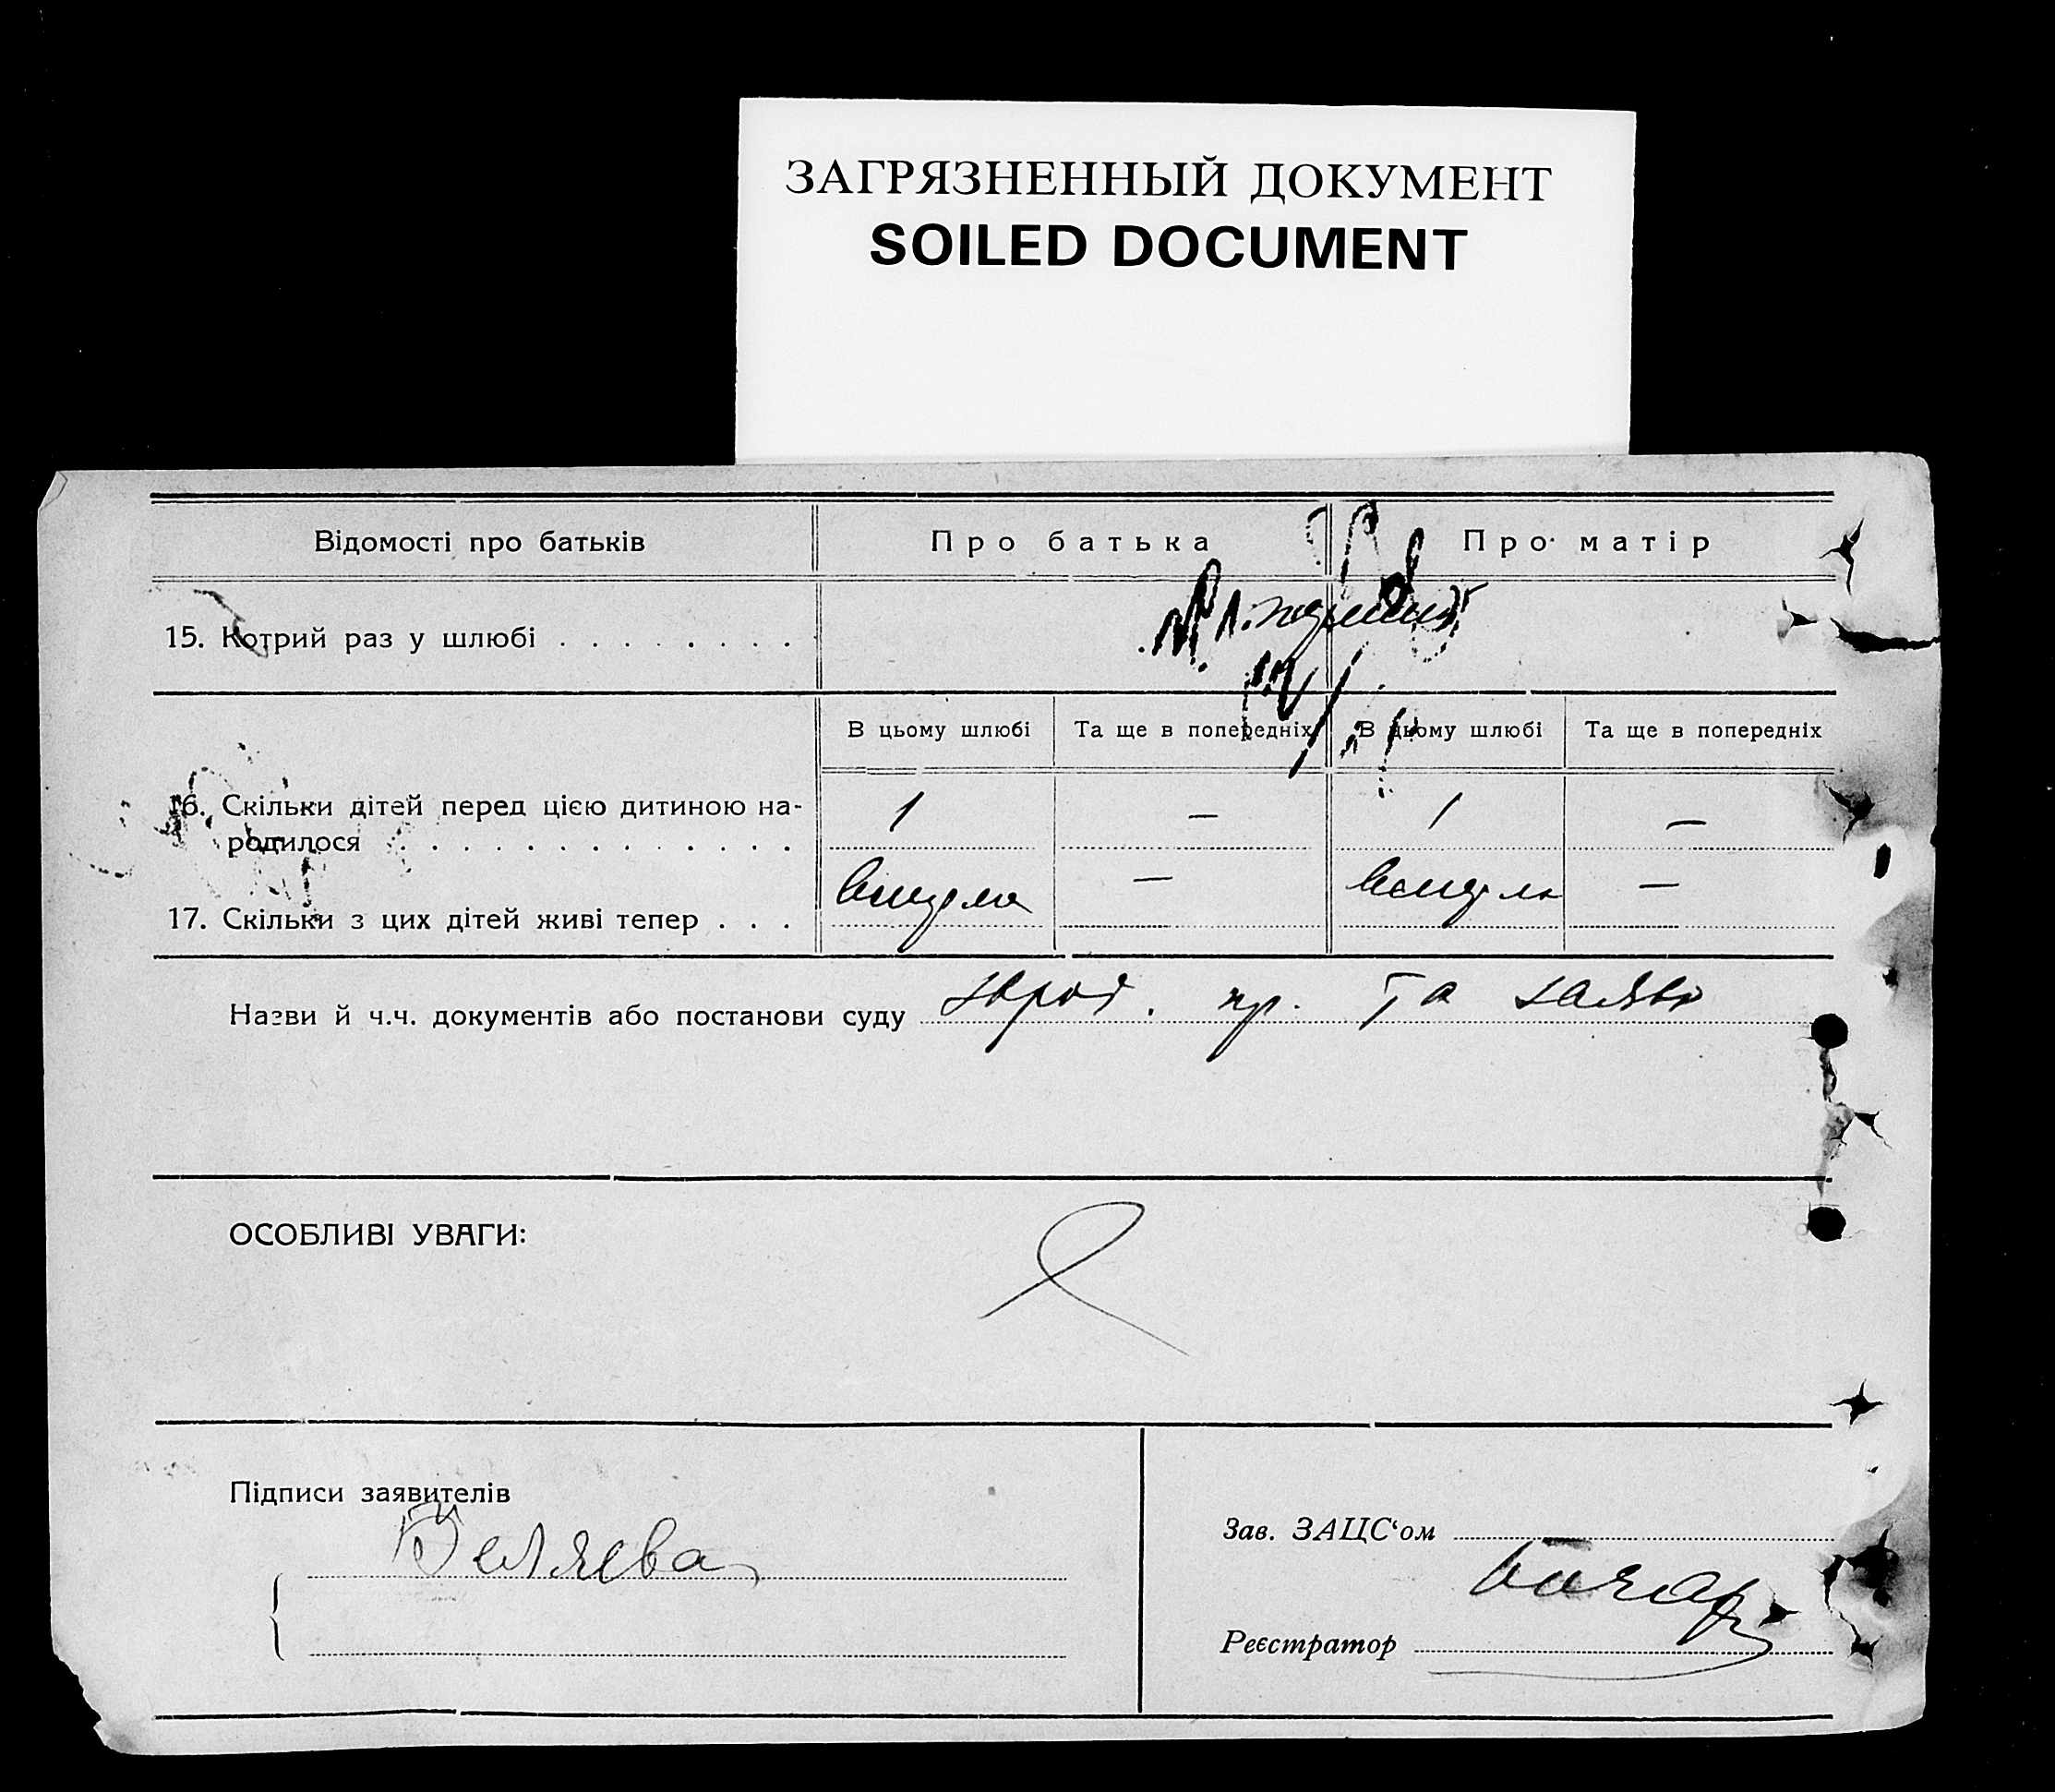 ЗАГРЯЗНЕННЫЙ ДОКУМЕНТ
SOILED DOCUMENT
Відомості про батьків
Про батька
Про матір
15. Котрий раз у шлюбі . . . . . . . .
В цьому шлюбі
Та ще в попередніх
В цьому шлюбі
Та ще в попередніх
16. Скільки дітей перед цією дитиною на-
родилося . . . . . . . . . . . . .
1 — 1 —
17. Скільки з цих дітей живі тепер . . .
— —
Назви й ч.ч. документів або постанови суду пр. та заяв
ОСОБЛИВІ УВАГИ:
Підписи заявителів
Беляева
Зав. ЗАЦС‘ом
Реєстратор